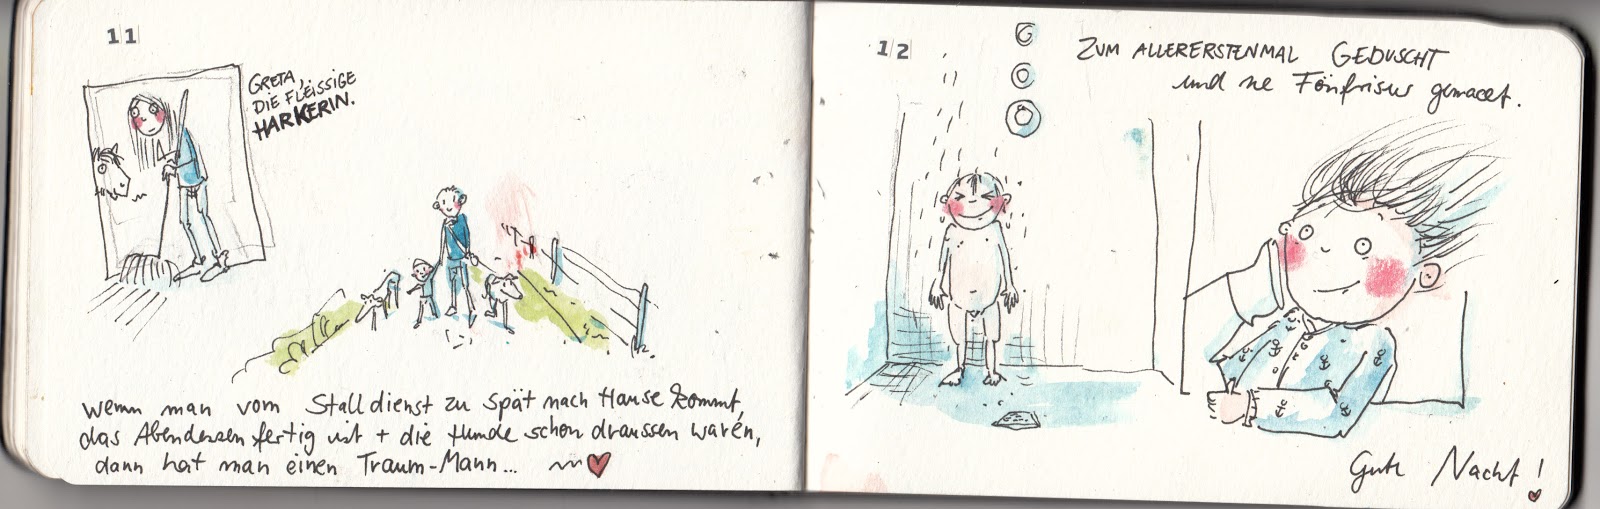 11
GRETA,
DIE FLEISSIGE
HARKERIN.
wenn man vom Stalldienst zu spät nach Hause kommt,
das Abendessen fertig ist + die Hunde schon draussen waren,
dann hat man einen Traum-Mann...
12
ZUM ALLERERSTENMAL GEDUSCHT
und ne Fönfrisur gemacht.
Gute Nacht!